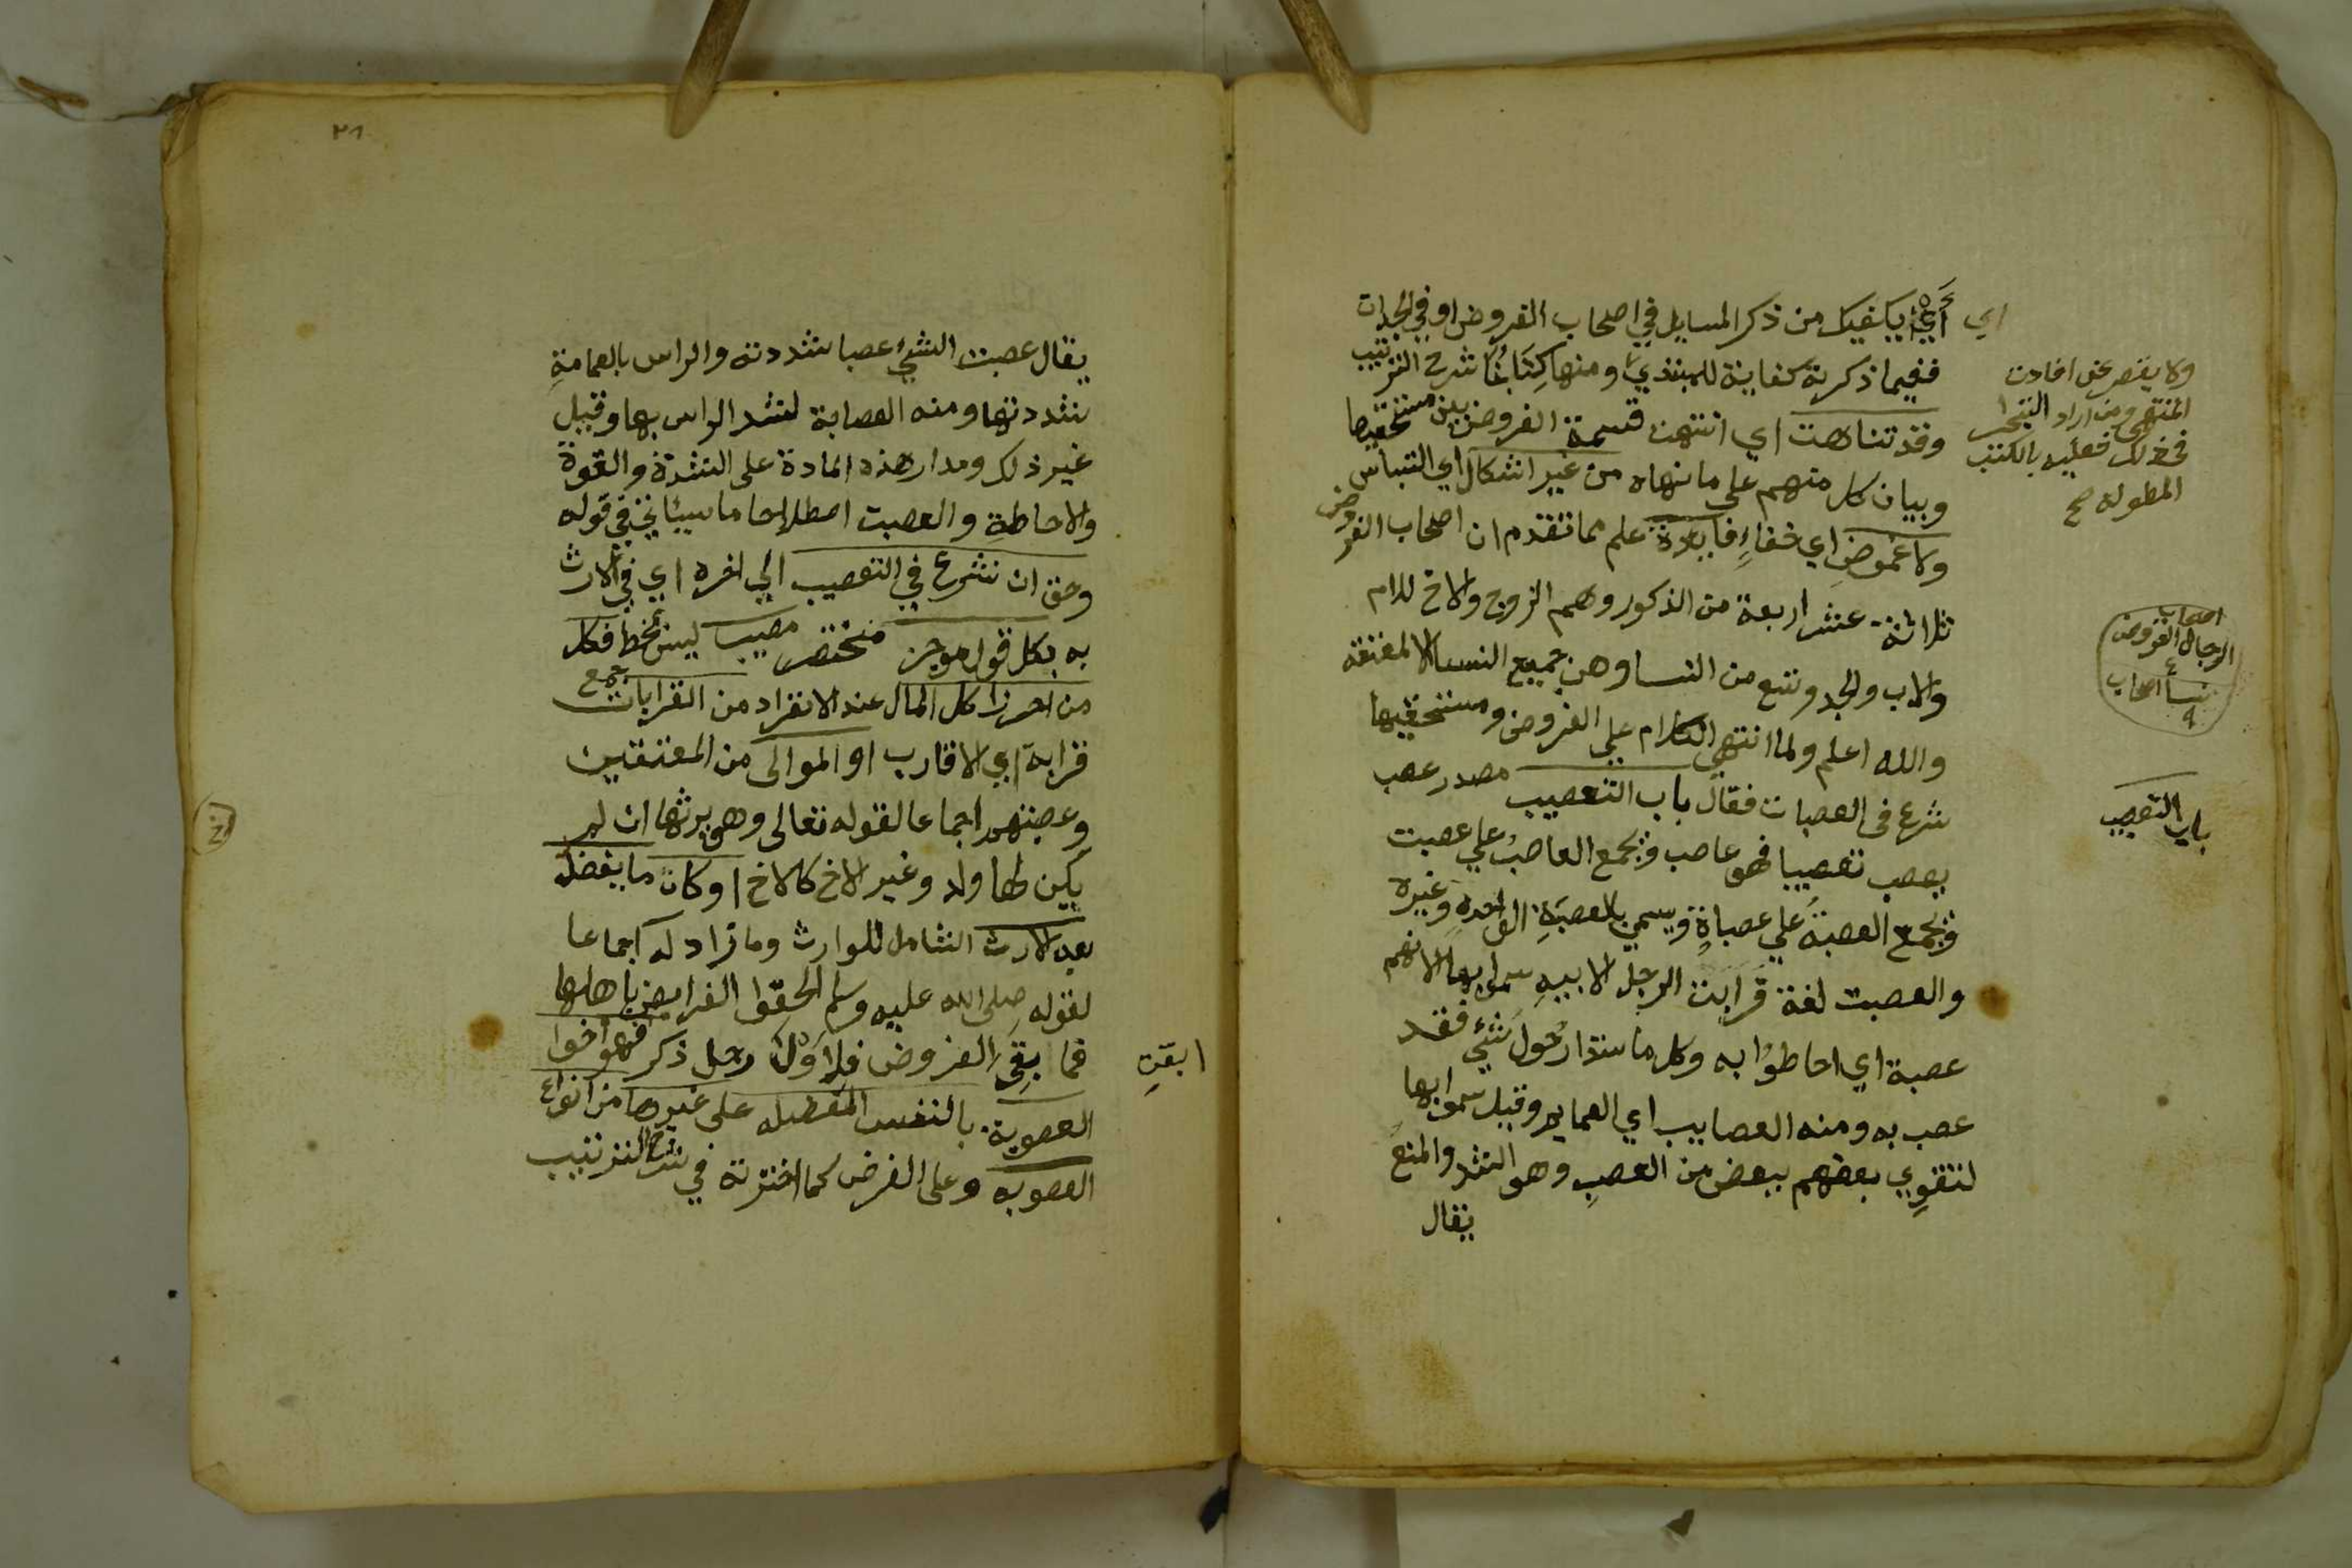 اي أي يكفيك من ذكر المسايل في اصحاب الفروض او في الجدات
ففيما ذكرته كفاية للمبتدي ومنها كتابنا شرح الترتيب
وقد تناهت اي انتهت قسمة الفروض بين مستحقيها
وبيان كل منهم على ما نهاه من غير اشكال اي التباس
ولا غموض اي خفاءٍ فايدة علم مما تقدم ان اصحاب الفروض
ثلاثة عشر اربعة من الذكور وهم الزوج والاخ للام
والاب والجد وتسع من النسا وهن جميع النسا الا المعتقة
والله اعلم ولما انتهى الكلام علي الفروض ومستحقيها
شرع في العصبات فقال باب التعصيب مصدر عصب
يعصب تعصيبا فهو عاصب ويجمع العاصب علي عصبت
ويجمع العصبة علي عصباة ويسمي بالعصبة الواحد وغيره
والعصبت لغة قرابت الرجل لابيه سموا بها لانهم
عصبة اي احاطوا به وكل ما ستدار حول شئي فقد
عصب به ومنه العصايب اي العمايم وقيل سموا بها
لتقوي بعضهم ببعض من العصب وهو الشد والمنع
يقال
ولا يقصر عن افادت
المنتهي ومن اراد التبحر
في ذلك فعليه بالكتب
المطولة صح
اصحاب
الرجال الفروض
٤
نسا اصحاب
٩
باب التعصيب
٢١
يقال عصبت الشئ عصبا شددته والراس بالعمامة
شددتها ومنه العصابة لشد الراس بها وقيل
غير ذلك ومدار هذه المادة على الشدة والقوة
والاحاطة والعصبت اصطلاحا ما سيئاتي في قوله
وحق ان نشرع في التعصيب الي اخره اي في الارث
به بكل قول موجز مختصر مصيب ليس بخط فكل
من احرز كل المال عند الانفراد من القرابات جمع
قرابة اي الاقارب او الموالى من المعتقين
وعصبتهم اجماعا لقوله تعالى وهو يرثها ان لم
يكن لها ولد وغير الاخ كالاخ او كان ما يفضل
بعد الارث الشامل للوارث وما زاد له اجماعا
لقوله صلى الله عليه وسلم الحقوا الفرايض باهلها
فما بقي الفروض فلاولى رجل ذكر فهو اخوا
العصوبة بالنفس المفضله على غيرها من انواع
العصوبه وعلى الفرض كما اخترته في شرح الترتيب
ابقت